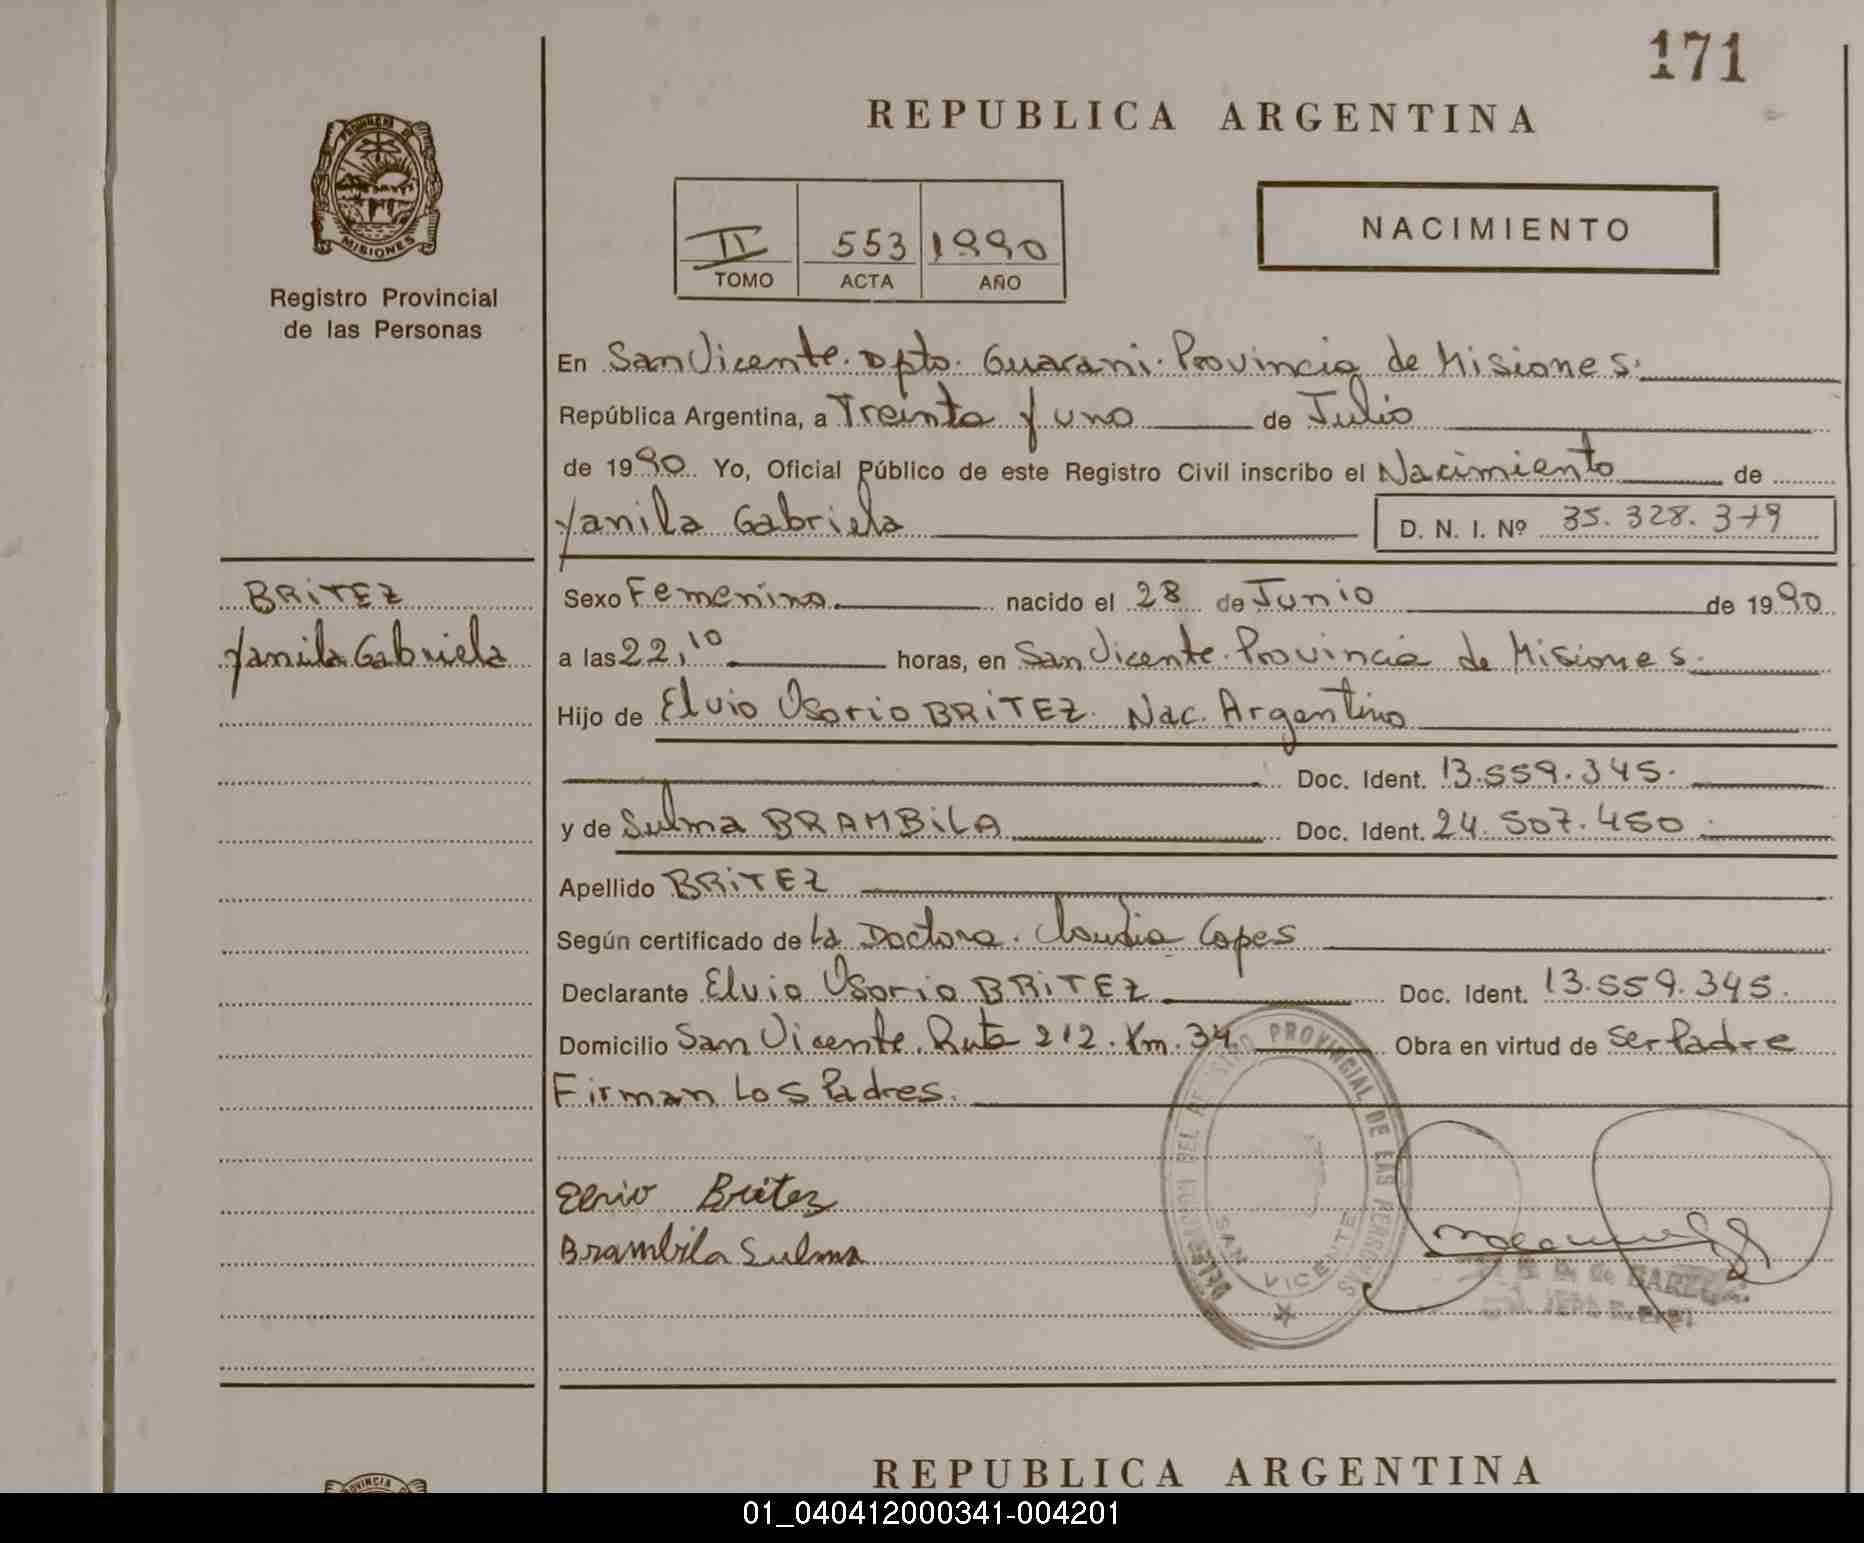 171
REPUBLICA ARGENTINA
PROVINCIA DE
MISIONES
Registro Provincial
de las Personas
II 553 1990
TOMO ACTA AÑO
NACIMIENTO
En San Vicente. Dpto. Guarani. Provincia de Misiones.
República Argentina, a Treinta y uno de Julio
de 1990 Yo, Oficial Público de este Registro Civil inscribo el Nacimiento de
Yanila Gabriela D. N. I. Nº 35.328.379
BRITEZ
Yanila Gabriela
Sexo Femenino. nacido el 28 de Junio de 1990
a las 22,10 horas, en San Vicente. Provincia de Misiones.
Hijo de Elvio Osorio BRITEZ. Nac. Argentino
Doc. Ident. 13.559.345.
y de Sulma BRAMBILA Doc. Ident. 24.507.450
Apellido BRITEZ
Según certificado de La Doctora. Claudia Copes
Declarante Elvio Osorio BRITEZ Doc. Ident. 13.559.345.
Domicilio San Vicente. Ruta 212. Km. 34 Obra en virtud de ser Padre
Firman Los Padres.
Elvio Britez
Brambila Sulma
DELEGACION DEL REGISTRO PROVINCIAL DE LAS PERSONAS
SAN VICENTE
REPUBLICA ARGENTINA
01_040412000341-004201